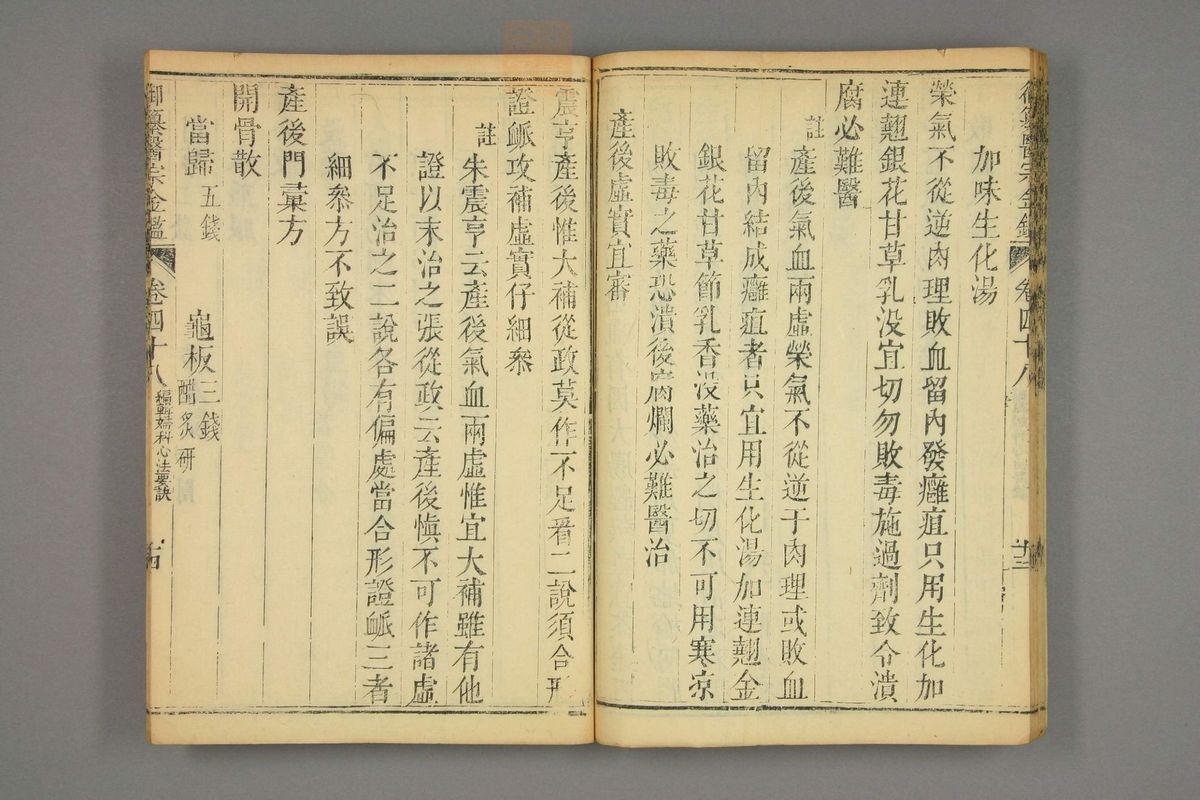 御纂醫宗金鑑 卷四十八 十三
加味生化湯
榮氣不從逆肉理敗血留內發癰疽只用生化加
連翹銀花甘草乳没宜切勿敗毒施過劑致令潰
腐必難醫
註 產後氣血兩虛榮氣不從逆于肉理或敗血
留內結成癰疽者只宜用生化湯加連翹金
銀花甘草節乳香没藥治之切不可用寒凉
敗毒之藥恐潰後腐爛必難醫治
產後虛實宜審
震亨產後惟大補從政莫作不足看二說須合形
證脈攻補虛實仔細叅
註 朱震亨云產後氣血兩虛惟宜大補雖有他
證以末治之張從政云產後慎不可作諸虛
不足治之二說各有偏處當合形證脈三者
細叅方不致誤
產後門彙方
開骨散
當歸五錢 龜板三錢醋炙研
御纂醫宗金鑑 卷四十八 編輯婦科心法要訣 十四